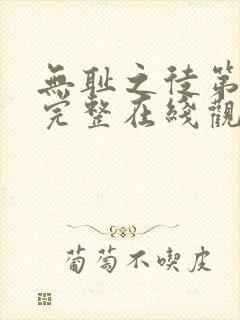 無耻之徒第
完整在綫觀
葡萄不喫皮